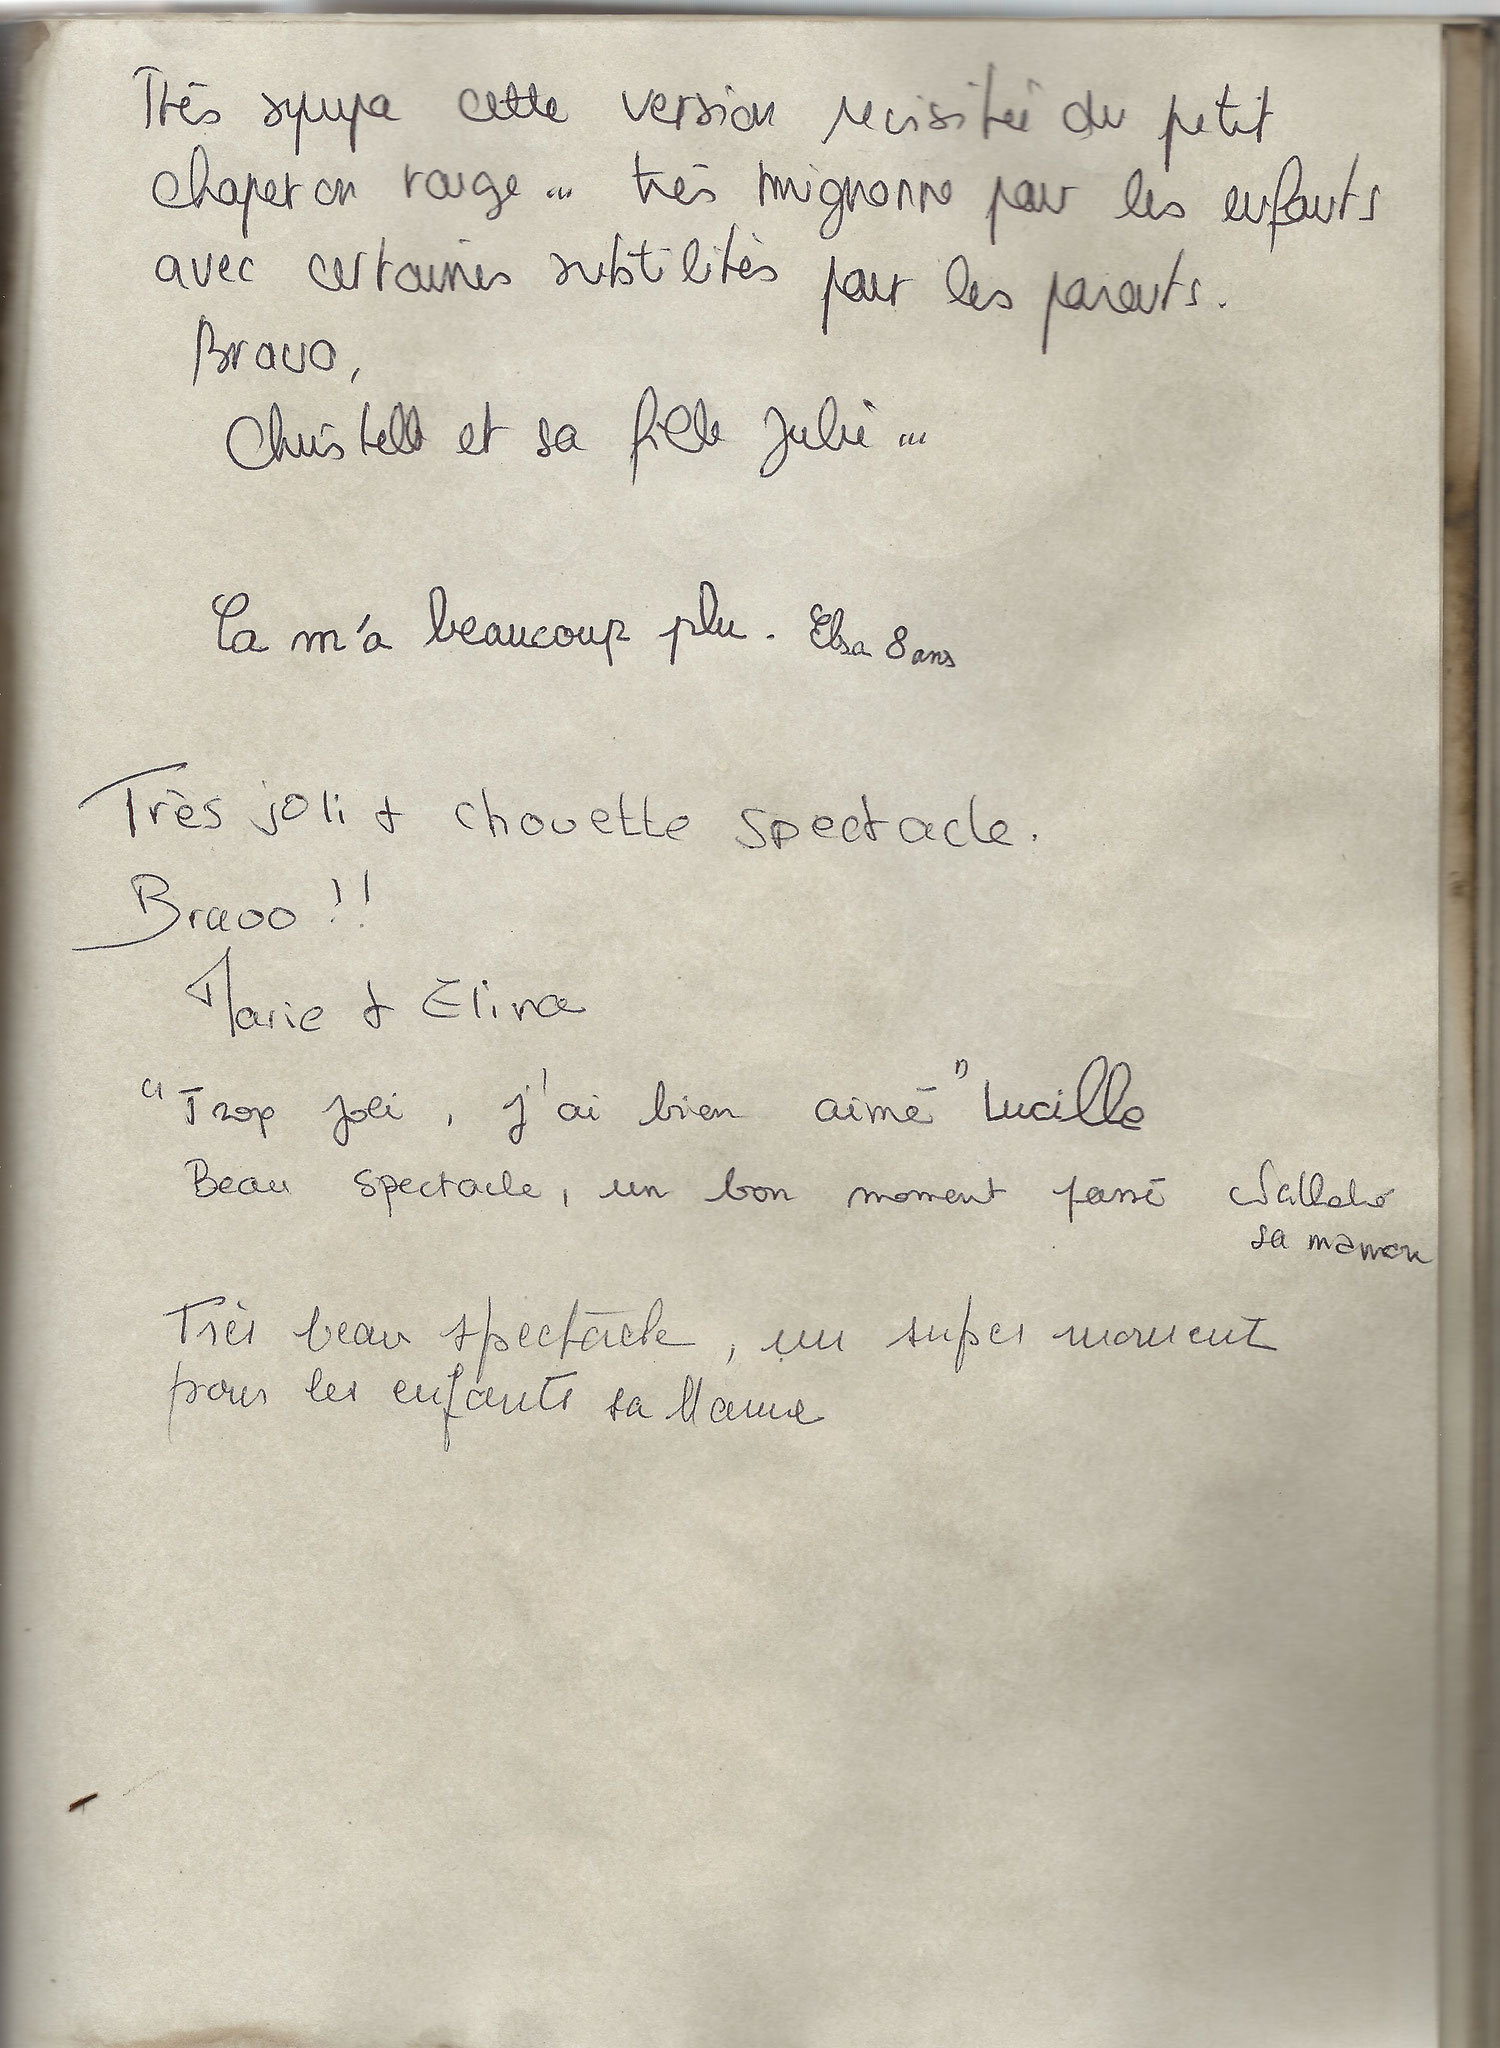 Très sympa cette version revisitée du petit
chaperon rouge... très mignonne pour les enfants
avec certaines subtilités pour les parents.
Bravo,
Christelle et sa fille Julie...
Ça m'a beaucoup plu. Elsa 8 ans
Très joli & chouette spectacle.
Bravo !!
Marie & Elina
"Trop joli, j'ai bien aimé" Lucille
Beau spectacle, un bon moment passé
sa maman
Très beau spectacle, un super moment
pour les enfants sa Mamie